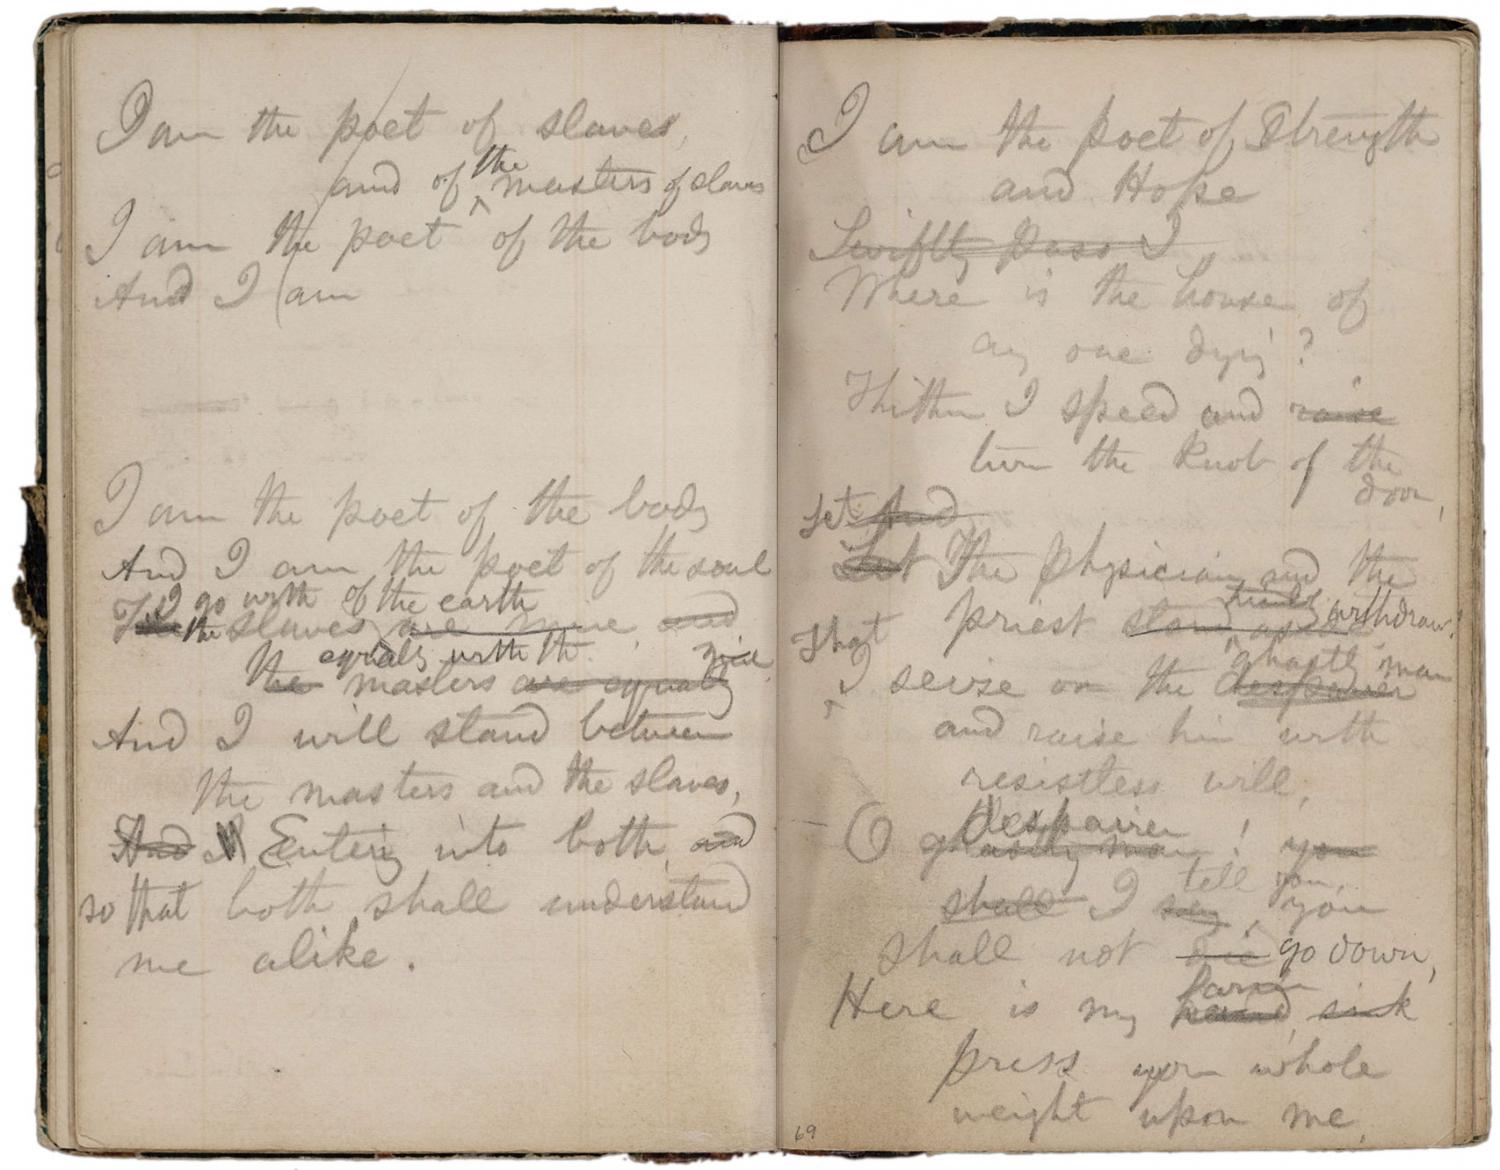 I am the poet of slaves,
the
and of ^ masters of slaves
I am the poet of the body
And I am
I am the poet of the body
And I am the poet of the soul
I go with of the earth
The the slaves are mine, and
equally with the mine
The the masters are equally
And I will stand between
the masters and the slaves,
And I Entering into both, and
so that both shall understand
me alike.
I am the poet of Strength
and Hope
Swiftly pass I
Where is the house of
any one dying?
Thither I speed and raise
turn the knob of the
door,
Let And
Let The physician and the
timidly withdraw!
priest stand aside
That ghastly man
^ I seize on the despairer
and raise him with
resistless will,
despairer
O ghastly man! you
tell you,
shall I say, you
shall not die go down,
Here is my hand, sink
press your whole
weight upon me,
69